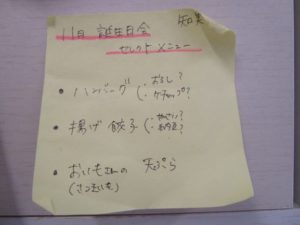 11日 誕生日会
セレクト メニュー
・ハンバーグ (・おろし?
・ケチャップ?
・揚げ餃子 (・やさい?
・おいもさんの 天ぷら
(さつまいも)